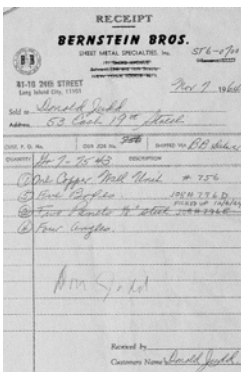 RECEIPT
BERNSTEIN BROS.
SHEET METAL SPECIALTIES, Inc.
ST6-0700
B B
41-16 24th STREET
Long Island City, 11101
Nov 7 196
Sold to Donald Judd
Address 53 East 19th Street
CUST. P. O. No. OUR JOB No. SHIPPED VIA BB
QUANTITY DESCRIPTION
1 One Copper Wall Unit # 756
5 Five Boxes JOB# 736D
PICKED UP
2 Two Panels steel
4 Four Angles.
Don Judd
Received by
Customers Name Donald Judd